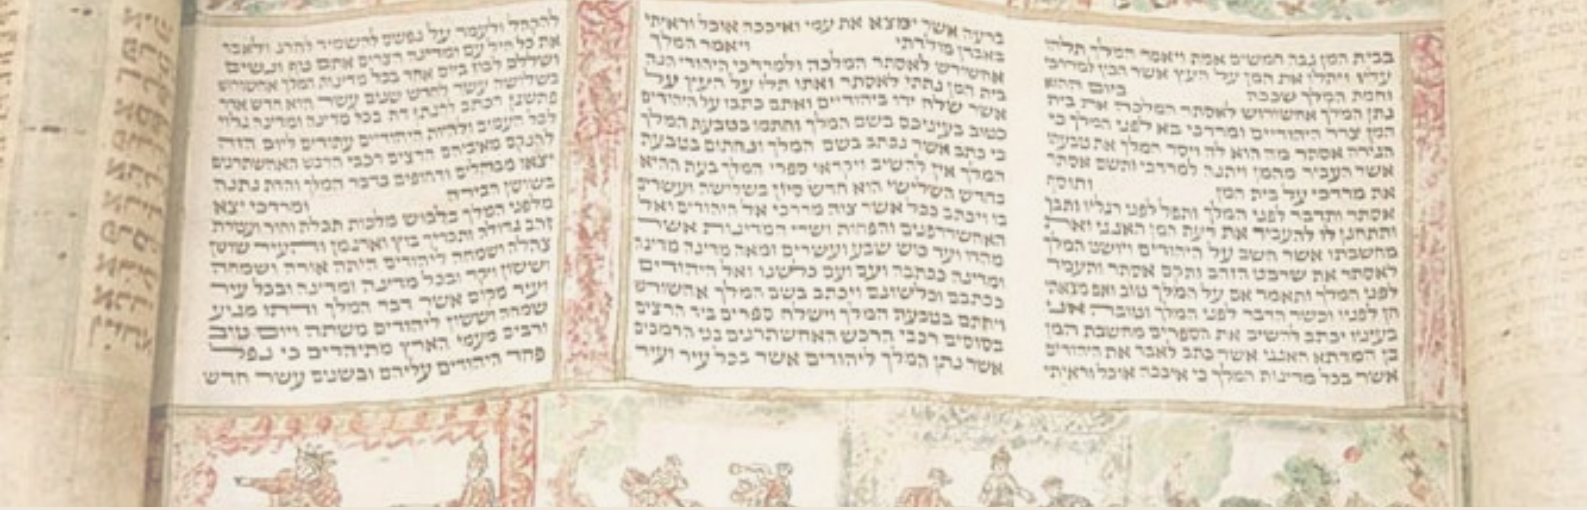 בבית המן גבה חמשים אמה ויאמר המלך תלהו
עליו ויתלו את המן על העץ אשר הכין למרדכי
וחמת המלך שככה ביום ההוא
נתן המלך אחשורוש לאסתר המלכה את בית
המן צרר היהודיים ומרדכי בא לפני המלך כי
הגידה אסתר מה הוא לה ויסר המלך את טבעתו
אשר העביר מהמן ויתנה למרדכי ותשם אסתר
את מרדכי על בית המן ותוסף
אסתר ותדבר לפני המלך ותפל לפני רגליו ותבך
ותתחנן לו להעביר את רעת המן האגגי ואת
מחשבתו אשר חשב על היהודים ויושט המלך
לאסתר את שרבט הזהב ותקם אסתר ותעמד
לפני המלך ותאמר אם על המלך טוב ואם מצאתי
חן לפניו וכשר הדבר לפני המלך וטובה אני
בעיניו יכתב להשיב את הספרים מחשבת המן
בן המדתא האגגי אשר כתב לאבד את היהודים
אשר בכל מדינות המלך כי איככה אוכל וראיתי
ברעה אשר ימצא את עמי ואיככה אוכל וראיתי
באבדן מולדתי ויאמר המלך
אחשורש לאסתר המלכה ולמרדכי היהודי הנה
בית המן נתתי לאסתר ואתו תלו על העץ על
אשר שלח ידו ביהודיים ואתם כתבו על היהודים
כטוב בעיניכם בשם המלך וחתמו בטבעת המלך
כי כתב אשר נכתב בשם המלך ונחתום בטבעת
המלך אין להשיב ויקראו ספרי המלך בעת ההיא
בחדש השלישי הוא חדש סיון בשלושה ועשרים
בו ויכתב ככל אשר צוה מרדכי אל היהודים ואל
האחשדרפנים והפחות ושרי המדינות אשר
מהדו ועד כוש שבע ועשרים ומאה מדינה מדינה
ומדינה ככתבה ועם ועם כלשנו ואל היהודים
ככתבם וכלשונם ויכתב בשם המלך אחשורש
ויחתם בטבעת המלך וישלח ספרים ביד הרצים
בסוסים רכבי הרכש האחשתרנים בני הרמכים
אשר נתן המלך ליהודים אשר בכל עיר ועיר
להקהל ולעמד על נפשם להשמיד להרג ולאבד
את כל חיל עם ומדינה הצרים אתם טף ונשים
ושללם לבוז ביום אחד בכל מדינות המלך אחשורוש
בשלושה עשר לחדש שנים עשר הוא חדש אדר
פתשגן הכתב להנתן דת בכל מדינה ומדינה גלוי
לכל העמים ולהיות היהודיים עתודים ליום הזה
להנקם מאיביהם הרצים רכבי הרכש האחשתרנים
יצאו מבהלים ודחופים בדבר המלך והדת נתנה
בשושן הבירה ומרדכי יצא
מלפני המלך בלבוש מלכות תכלת וחור ועטרת
זהב גדולה ותכריך בוץ וארגמן והעיר שושן
צהלה ושמחה ליהודים היתה אורה ושמחה
וששון ויקר ובכל מדינה ומדינה ובכל עיר
ועיר מקום אשר דבר המלך ודתו מגיע
שמחה וששון ליהודים משתה ויום טוב
ורבים מעמי הארץ מתיהדים כי נפל
פחד היהודים עליהם ובשנים עשר חדש